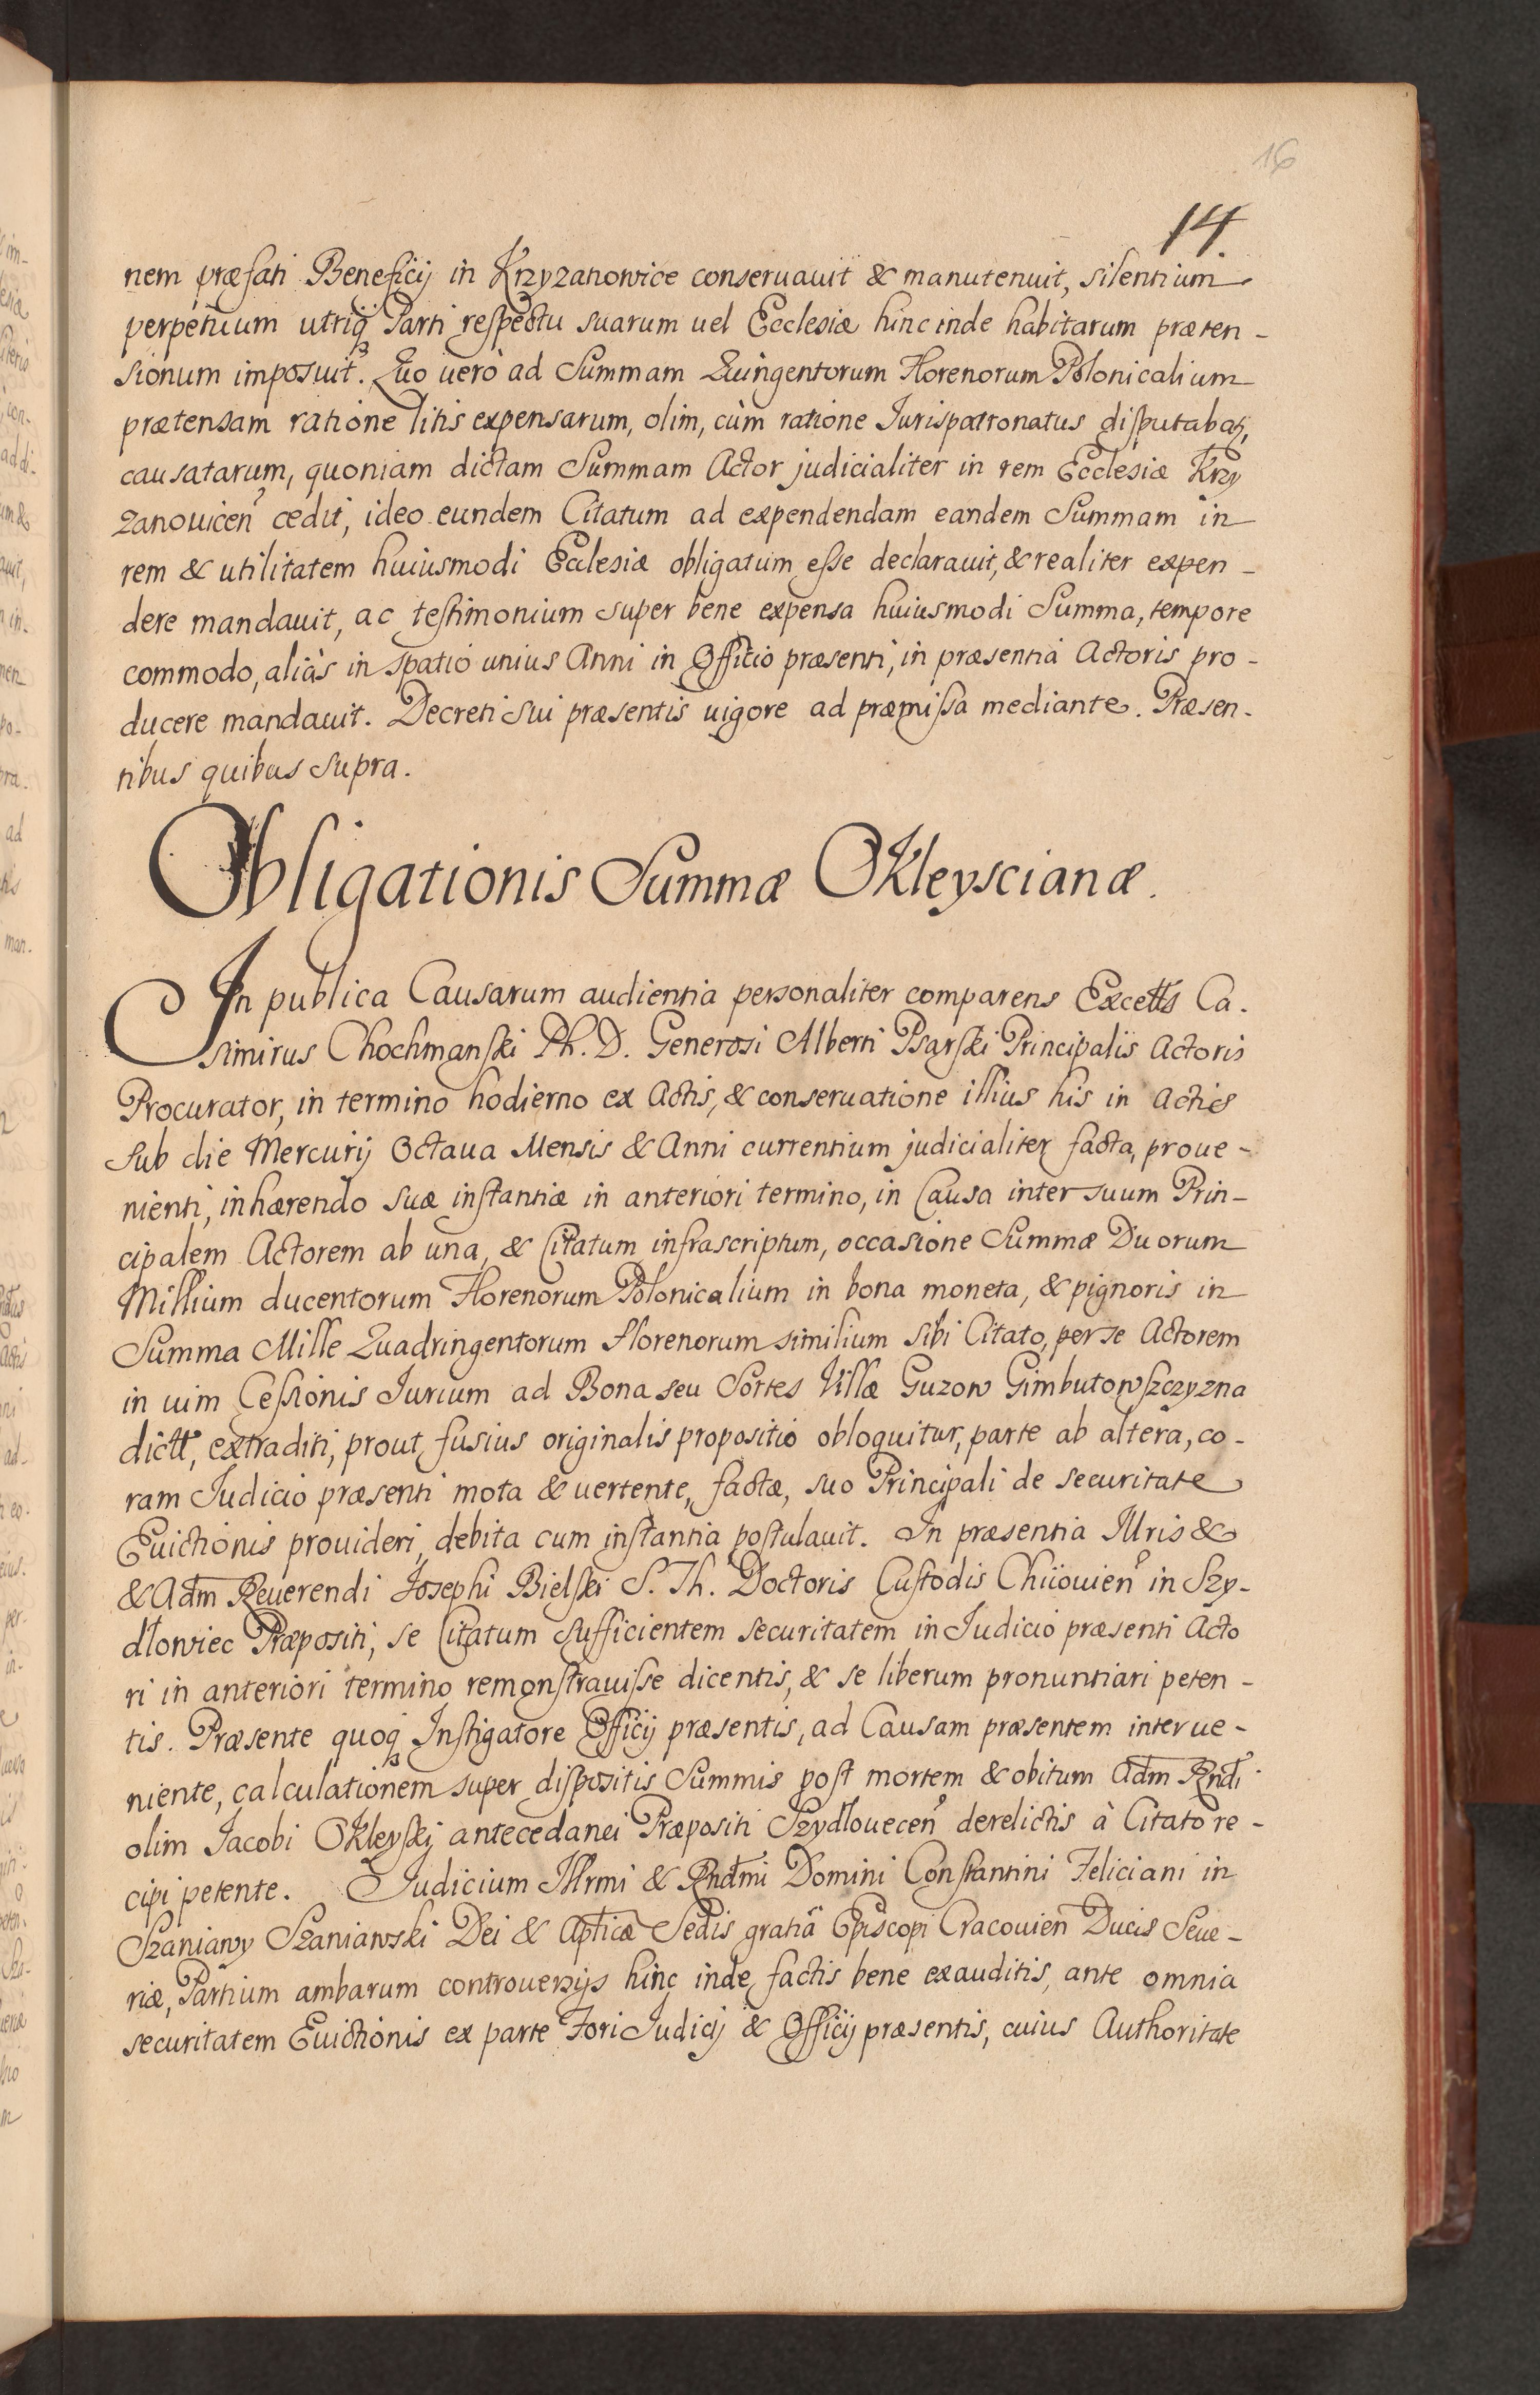 16
14.
nem præfati Beneficij in Krzyzanowice conseruauit & manutenuit, silentium
perpetuum utriq3 Parti respectu suarum uel Ecclesiæ hinc inde habitarum præten-
sionum imposuit. Quo uerò ad Summam Quingentorum Florenorum Polonicalium
prætensam ratione litis expensarum, olim, cùm ratione Iurispatronatus disputabat,
causatarum, quoniam dictam Summam Actor judicialiter in rem Ecclesiæ Krzy
zanouicen̄ cedit, ideo eundem Citatum ad expendendam eandem Summam in
rem & utilitatem huiusmodi Ecclesiæ obligatum esse declarauit, & realiter expen-
dere mandauit, ac testimonium super bene expensa huiusmodi Summa, tempore
commodo, aliàs in spatio unius Anni in Officio præsenti, in præsentia Actoris pro-
ducere mandauit. Decreti sui præsentis uigore ad præmissa mediante. Præsen-
tibus quibus supra.
Obligationis Summæ OKleyscianæ.
In publica Causarum audientia personaliter comparens Excell̃s Ca.
simirus Chochmanski Ph. D. Generosi Alberti Psarski Principalis Actoris
Procurator, in termino hodierno ex Actis, & conseruatione illius his in Actis
sub die Mercurij Octaua Mensis & Anni currentium judicialiter facta, proue-
nienti, inhærendo suæ instantiæ in anteriori termino, in Causa inter suum Prin-
cipalem Actorem ab una, & Citatum infrascriptum, occasione Summæ Duorum
Millium ducentorum Florenorum Polonicalium in bona moneta, & pignoris in
Summa Mille Quadringentorum Florenorum similium sibi Citato, per se Actorem
in uim Cessionis Iurium ad Bona seu Sortes Villæ Guzow Gimbutowszczyzna
dictt̃, extraditi, prout fusius originalis propositio obloquitur, parte ab altera, co-
ram Iudicio præsenti mota & uertente, factæ, suo Principali de securitate
Euictionis prouideri, debita cum instantia postulauit. In præsentia Illris &
& Adm̄ Reuerendi Josephi Bielski S. Th. Doctoris Custodis Chiiouien̄ in Szy-
dłowiec Præpositi, se Citatum sufficientem securitatem in Iudicio præsenti Acto
ri in anteriori termino remonstrauisse dicentis, & se liberum pronuntiari peten-
tis. Præsente quoq3 Instigatore Officij præsentis, ad Causam præsentem interue-
niente, calculationem super dispositis Summis post mortem & obitum Adm̄ Rndi
olim Jacobi OKleyskj antecedanei Præpositi Szydłouecen̄ derelictis à Citato re-
cipi petente. Judicium Illrmi & Rndmi Domini Constantini Feliciani in
Szaniawy Szaniawski Dei & Aplicæ Sedis gratiâ Episcopi Cracouien̄ Ducis Seue-
riæ, Partium ambarum controuersijs hinc inde factis bene exauditis, ante omnia
securitatem Euictionis ex parte Fori Iudicij & Officij præsentis, cuius Authoritate